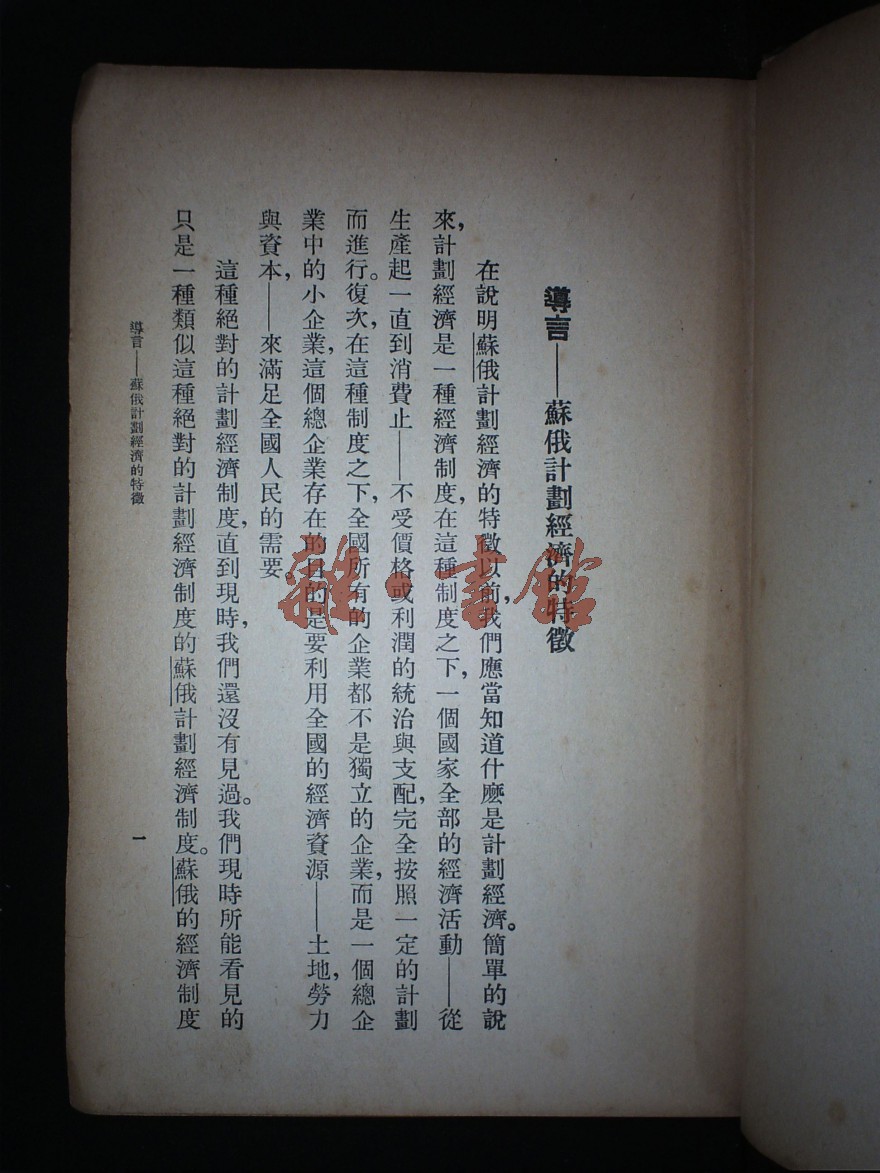 導言——蘇俄計劃經濟的特徵
在說明蘇俄計劃經濟的特徵以前，我們應當知道什麽是計劃經濟。簡單的說
來，計劃經濟是一種經濟制度，在這種制度之下，一個國家全部的經濟活動——從
生產起一直到消費止——不受價格或利潤的統治與支配，完全按照一定的計劃
而進行。復次，在這種制度之下，全國所有的企業都不是獨立的企業，而是一個總企
業中的小企業，這個總企業存在的目的是要利用全國的經濟資源——土地，勞力
與資本，——來滿足全國人民的需要。
這種絕對的計劃經濟制度，直到現時，我們還沒有見過。我們現時所能看見的
只是一種類似這種絕對的計劃經濟制度的蘇俄計劃經濟制度。蘇俄的經濟制度
導言——蘇俄計劃經濟的特徵
一
雜·書館